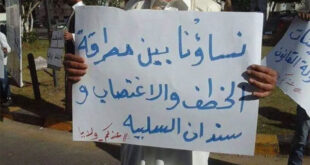 نساؤنا بين مطرقة
الخطف والاغتصاب و
سندان السلبية